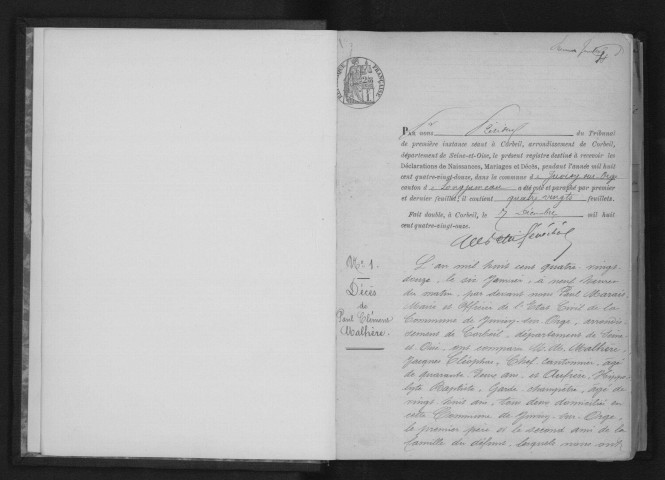 PAR nous Président du Tribunal
de première instance séant à Corbeil, arrondissement de Corbeil,
département de Seine-et-Oise, le présent registre destiné à recevoir les
Déclarations de Naissances, Mariages et Décès, pendant l'année mil huit
cent quatre-vingt-douze, dans la commune de Juvisy sur Orge
canton de Longjumeau a été coté et paraphé par premier
et dernier feuillet; il contient quatre vingts feuillets.
Fait double, à Corbeil, le 7 Décembre mil huit
cent quatre-vingt-onze.
N° 1
Décès
de
Paul Clément
Malhère.
L'an mil huit cent quatre-vingt
douze, le six Janvier, à neuf heures
du matin, par devant nous Paul Marais
Maire et Officier de l'Etat Civil de la
Commune de Juvisy-sur-Orge, arrondis-
sement de Corbeil, département de Seine
et Oise, ont comparu M.M. Malhère,
Jacques Cléophas, Chef cantonnier, âgé
de quarante ans, et Hippo-
lyte Baptiste, Garde champêtre, âgé de
vingt huit ans, tous deux domiciliés en
cette Commune de Juvisy-sur-Orge,
le premier père et le second ami de la
famille du défunt, lesquels nous ont